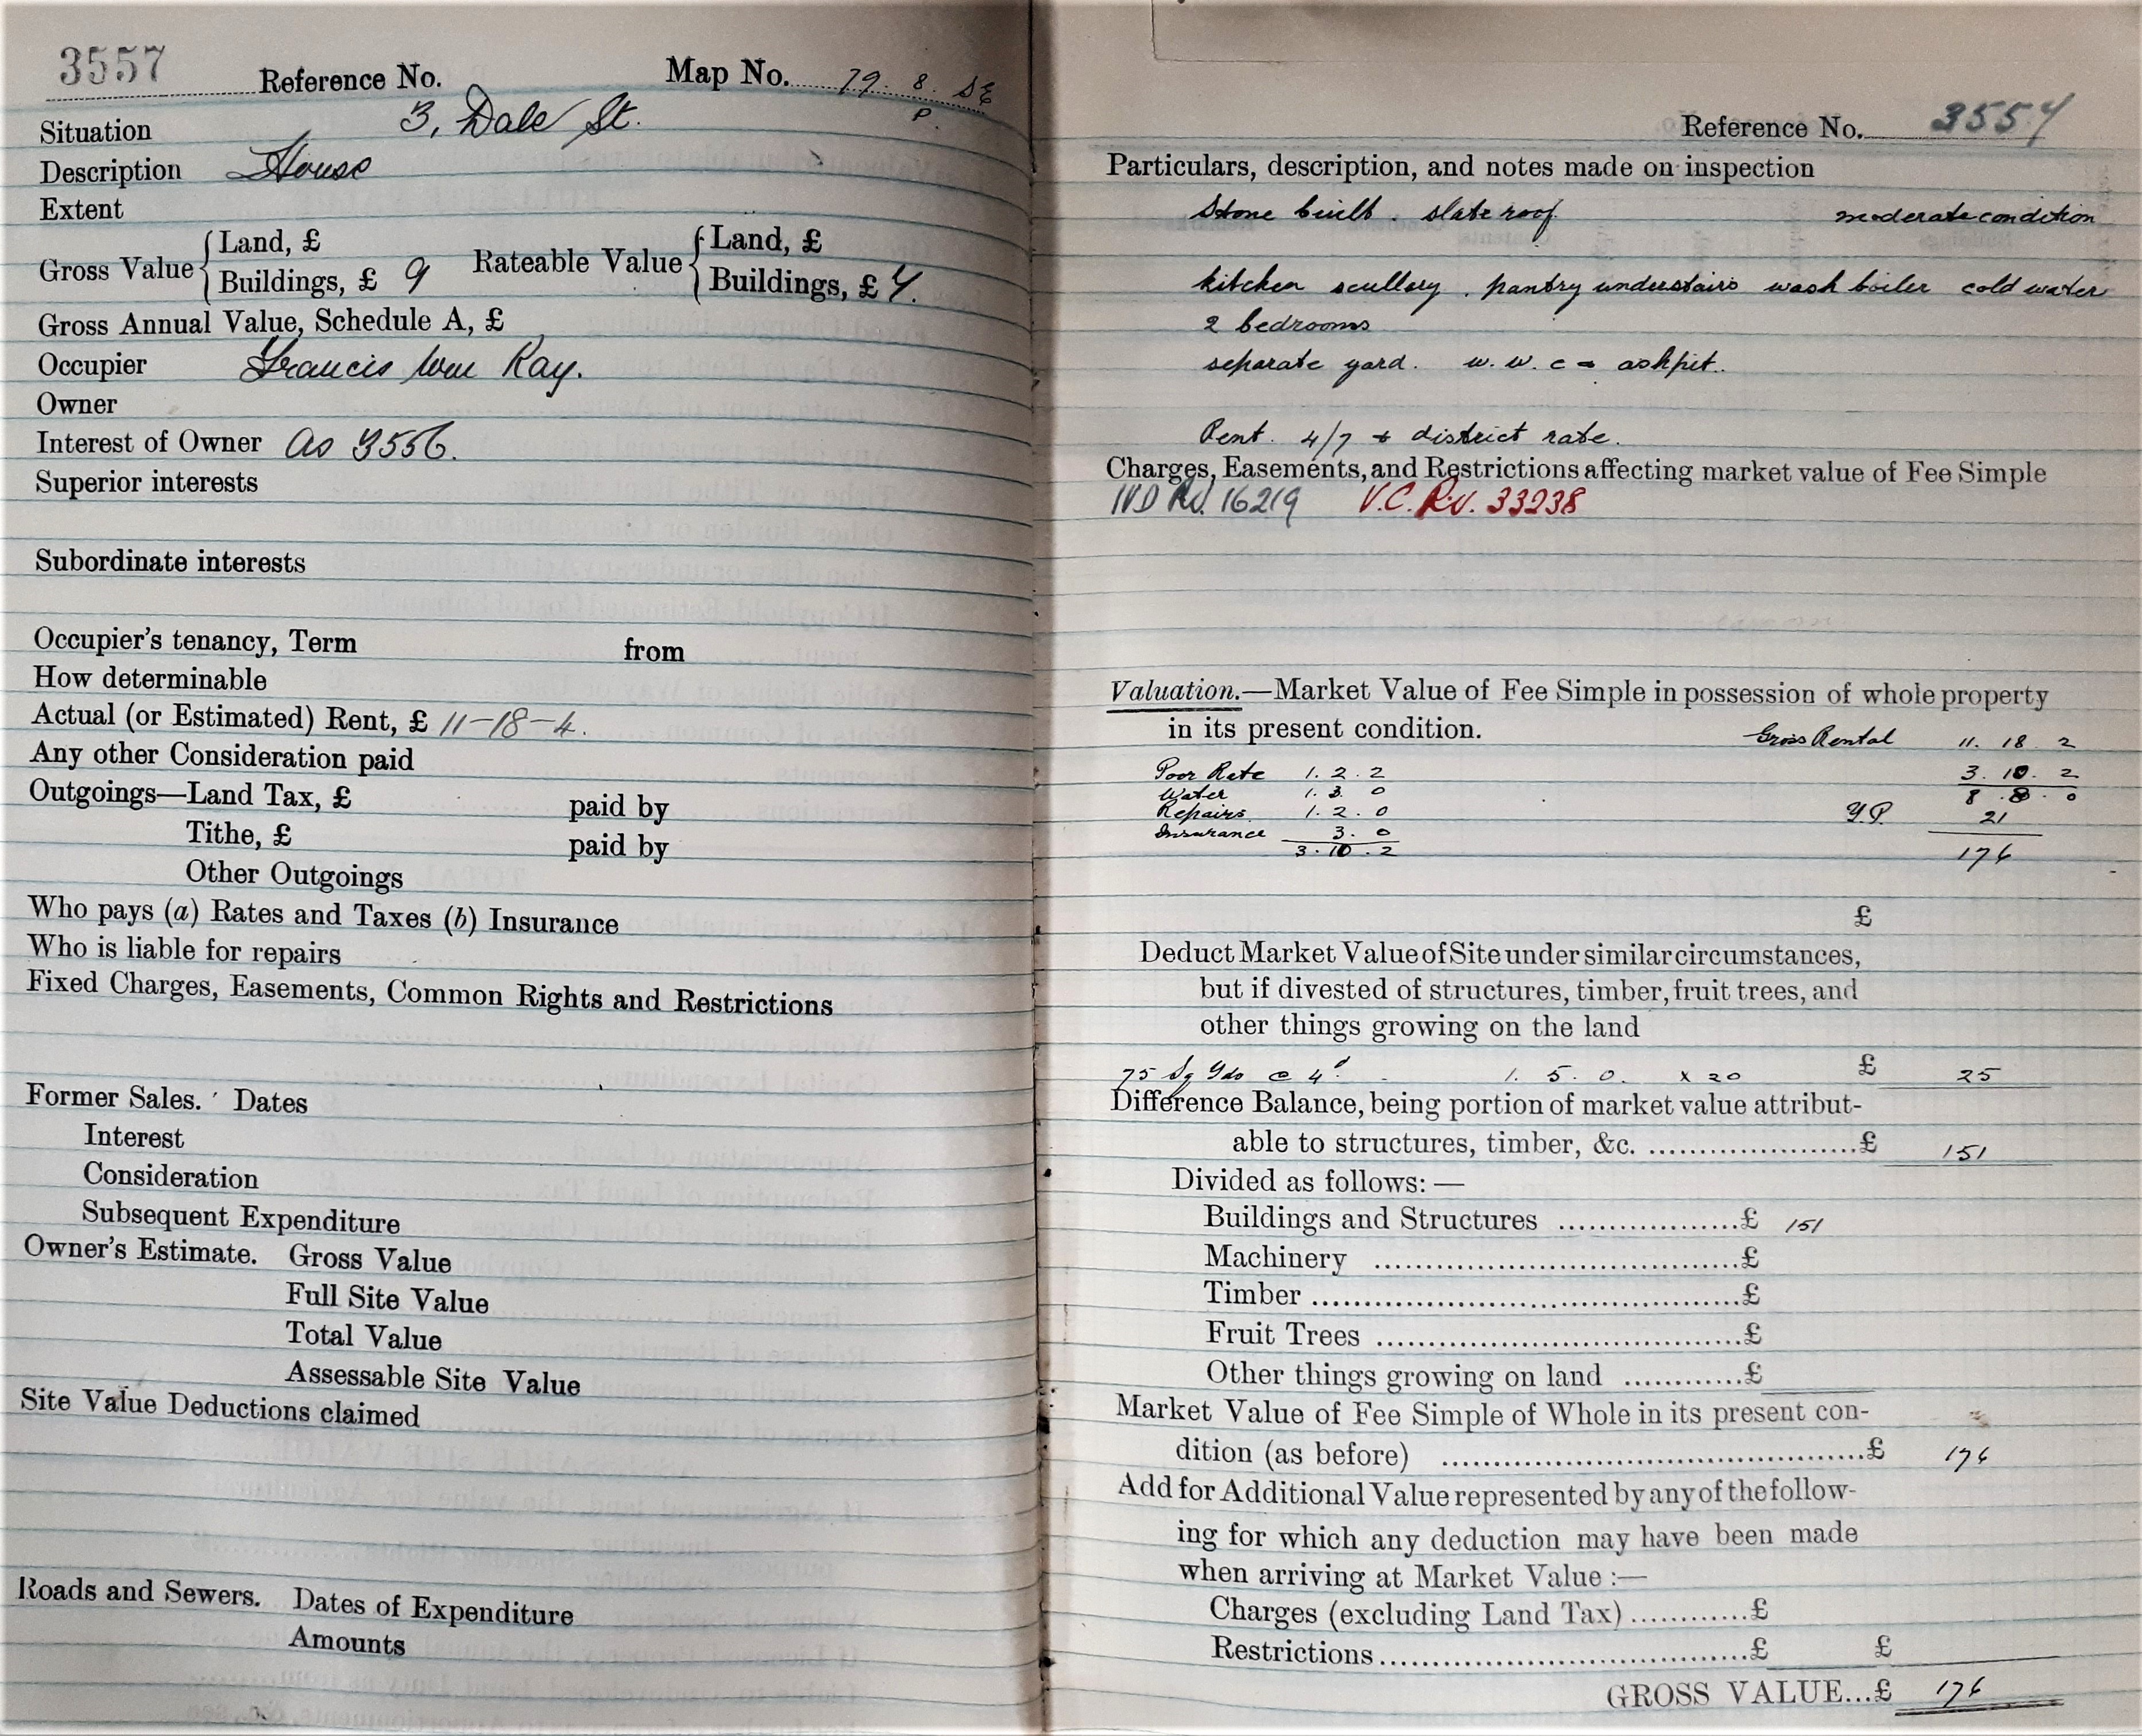 3557 Reference No. Map No. 79. 8. SE
P.
Situation 3, Dale St.
Description House
Extent
Gross Value { Land, £ Rateable Value { Land, £
Buildings, £ 9 Buildings, £ 7.
Gross Annual Value, Schedule A, £
Occupier Francis Wm Kay.
Owner
Interest of Owner as 3556.
Superior interests
Subordinate interests
Occupier's tenancy, Term from
How determinable
Actual (or Estimated) Rent, £ 11-18-4.
Any other Consideration paid
Outgoings—Land Tax, £ paid by
Tithe, £ paid by
Other Outgoings
Who pays (a) Rates and Taxes (b) Insurance
Who is liable for repairs
Fixed Charges, Easements, Common Rights and Restrictions
Former Sales. Dates
Interest
Consideration
Subsequent Expenditure
Owner's Estimate. Gross Value
Full Site Value
Total Value
Assessable Site Value
Site Value Deductions claimed
Roads and Sewers. Dates of Expenditure
Amounts
Reference No. 3557
Particulars, description, and notes made on inspection
Stone built. slate roof. moderate condition
kitchen scullery. pantry understairs wash boiler cold water
2 bedrooms
separate yard. w.w.c & ashpit.
Rent. 4/7 + district rate.
Charges, Easements, and Restrictions affecting market value of Fee Simple
IVD Rv. 16219 V.C. R.v. 33238
Valuation.—Market Value of Fee Simple in possession of whole property
in its present condition. Gross Rental 11. 18. 2
Poor Rate 1. 2. 2 3. 10. 2
Water 1. 3. 0 8. 8. 0
Repairs 1. 2. 0 Y.P. 21
Insurance 3. 0
3. 10. 2 176
£
Deduct Market Value of Site under similar circumstances,
but if divested of structures, timber, fruit trees, and
other things growing on the land
75 Sq Yds @ 4d. - 1. 5. 0. x 20 £ 25
Difference Balance, being portion of market value attribut-
able to structures, timber, &c. ......................£ 151
Divided as follows: —
Buildings and Structures ..................£ 151
Machinery ....................................£
Timber ..........................................£
Fruit Trees ....................................£
Other things growing on land ............£
Market Value of Fee Simple of Whole in its present con-
dition (as before) ..........................................£ 176
Add for Additional Value represented by any of the follow-
ing for which any deduction may have been made
when arriving at Market Value :—
Charges (excluding Land Tax) ............£
Restrictions ....................................£ £
GROSS VALUE...£ 176